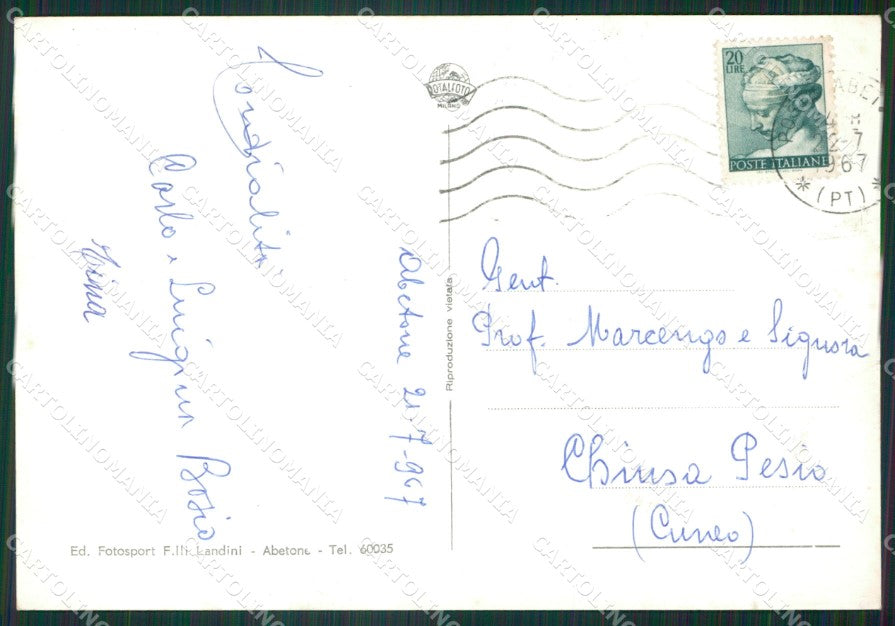 Cordialità
Carlo e Luigina Bosio
Abetone 21-7-967
Ed. Fotosport F.lli Landini - Abetone - Tel. 60035
Riproduzione vietata
ROTALFOTO
MILANO
20
LIRE
POSTE ITALIANE
1967
(PT)
Gent.
Prof. Marcengo e Signora
Chiusa Pesio
(Cuneo)
CARTOLINOMANIA